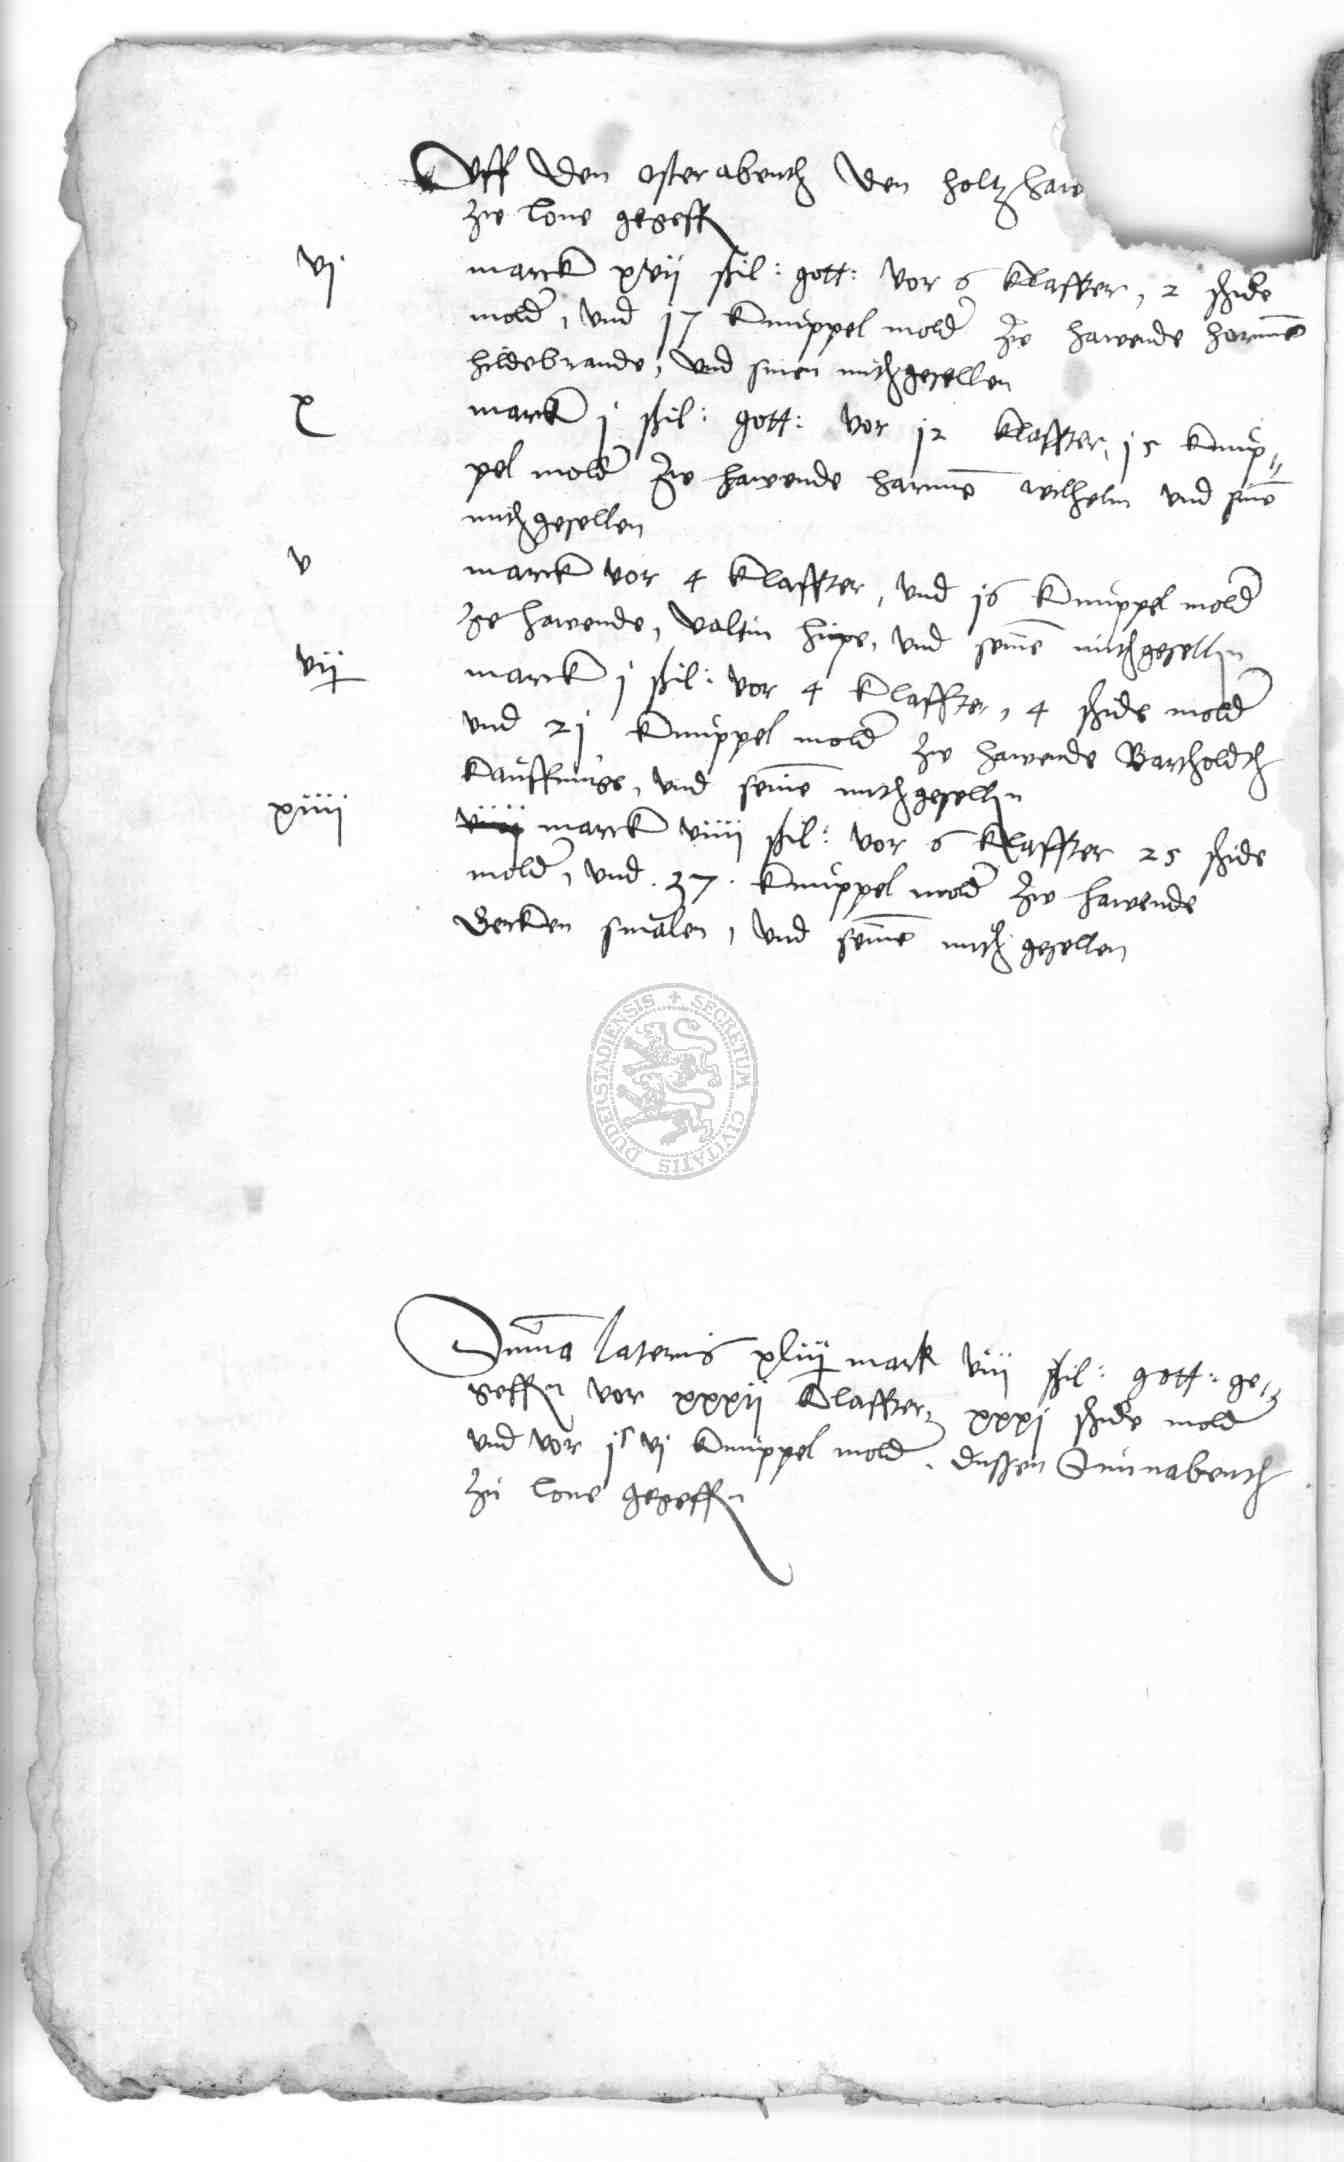 Uff den osterabenth den holtzhaw
zw lone gegeffen
vj marck xvij schil: gott: vor 6 klaffter, 2 schide
molder, vnd 17 knüppel molder zw hawende harmen
hildebrande, vnd sinen mithgesellen
x marck j schil: gott: vor 12 klaffter, 15 knüp„
pel molder zw hawende harmen wilhelm vnd sinen
mithgesellen
v marck vor 4 klaffter, vnd 16 knüppel molder
ze hawende, valtin hüpe, vnd seinen mithgesellin
vij marck j schil: vor 4 klaffter, 4 schide molder
vnd 21 knüppel molder zw hawende Bartholdth
kauffunge, vnd seinen mithgesellin
xiiij marck viiij schil: vor 6 klaffter 25 schide
molder, vnd .37. knüppel molder zw hawende
smalen, vnd seinen mith gesellen
SECRETUM CIVITATIS DUDERSTADIENSIS
Summa lateris xliij mark viij schil: gott: ge„
geffen vor xxxij klaffter, xxxj schide molder
vnd vor jc vj knüppel molder. dussen Sunnabenth
zu lone gegeffen